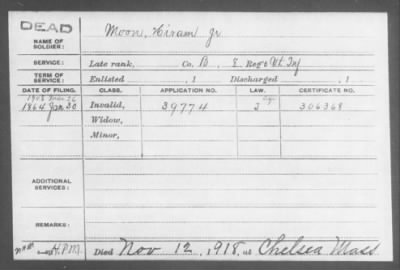 DEAD
NAME OF SOLDIER:
Moon, Hiram Jr
SERVICE:
Late rank, Co. B, E. Reg't Vt. Inf
TERM OF SERVICE:
Enlisted , 1 Discharged , 1
DATE OF FILING. CLASS. APPLICATION NO. LAW. CERTIFICATE NO.
1864 Jan 30 Invalid, 39774 306368
Widow,
Minor,
ADDITIONAL SERVICES:
REMARKS:
H.P.M. Died Nov 12, 1918, at Chelsea Mass